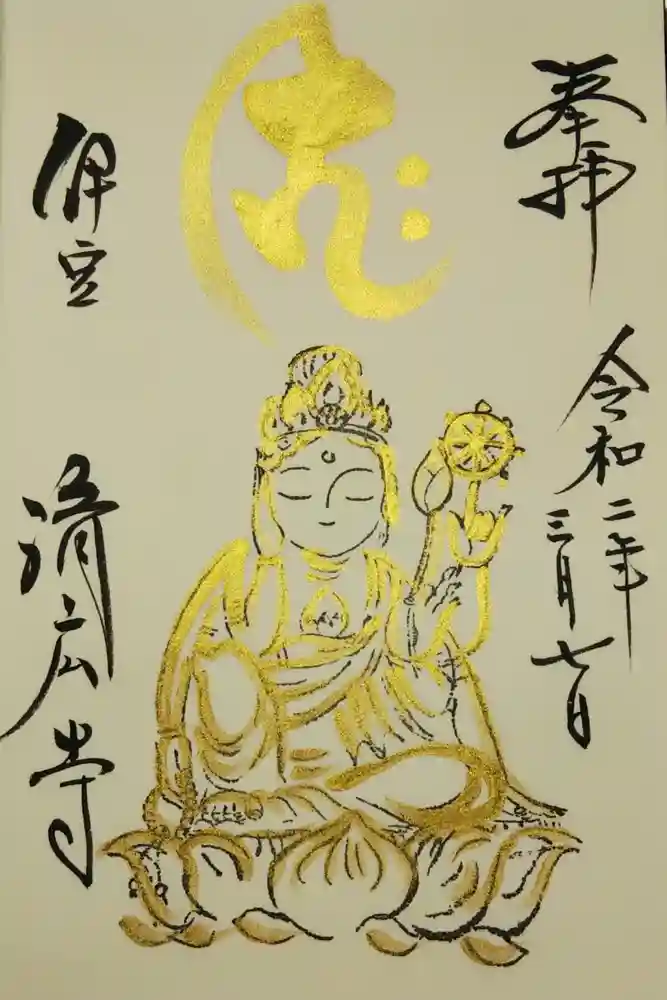 奉拝
令和二年
三月七日
𑖮𑖿𑖨𑖱𑖾
伊豆
清広寺